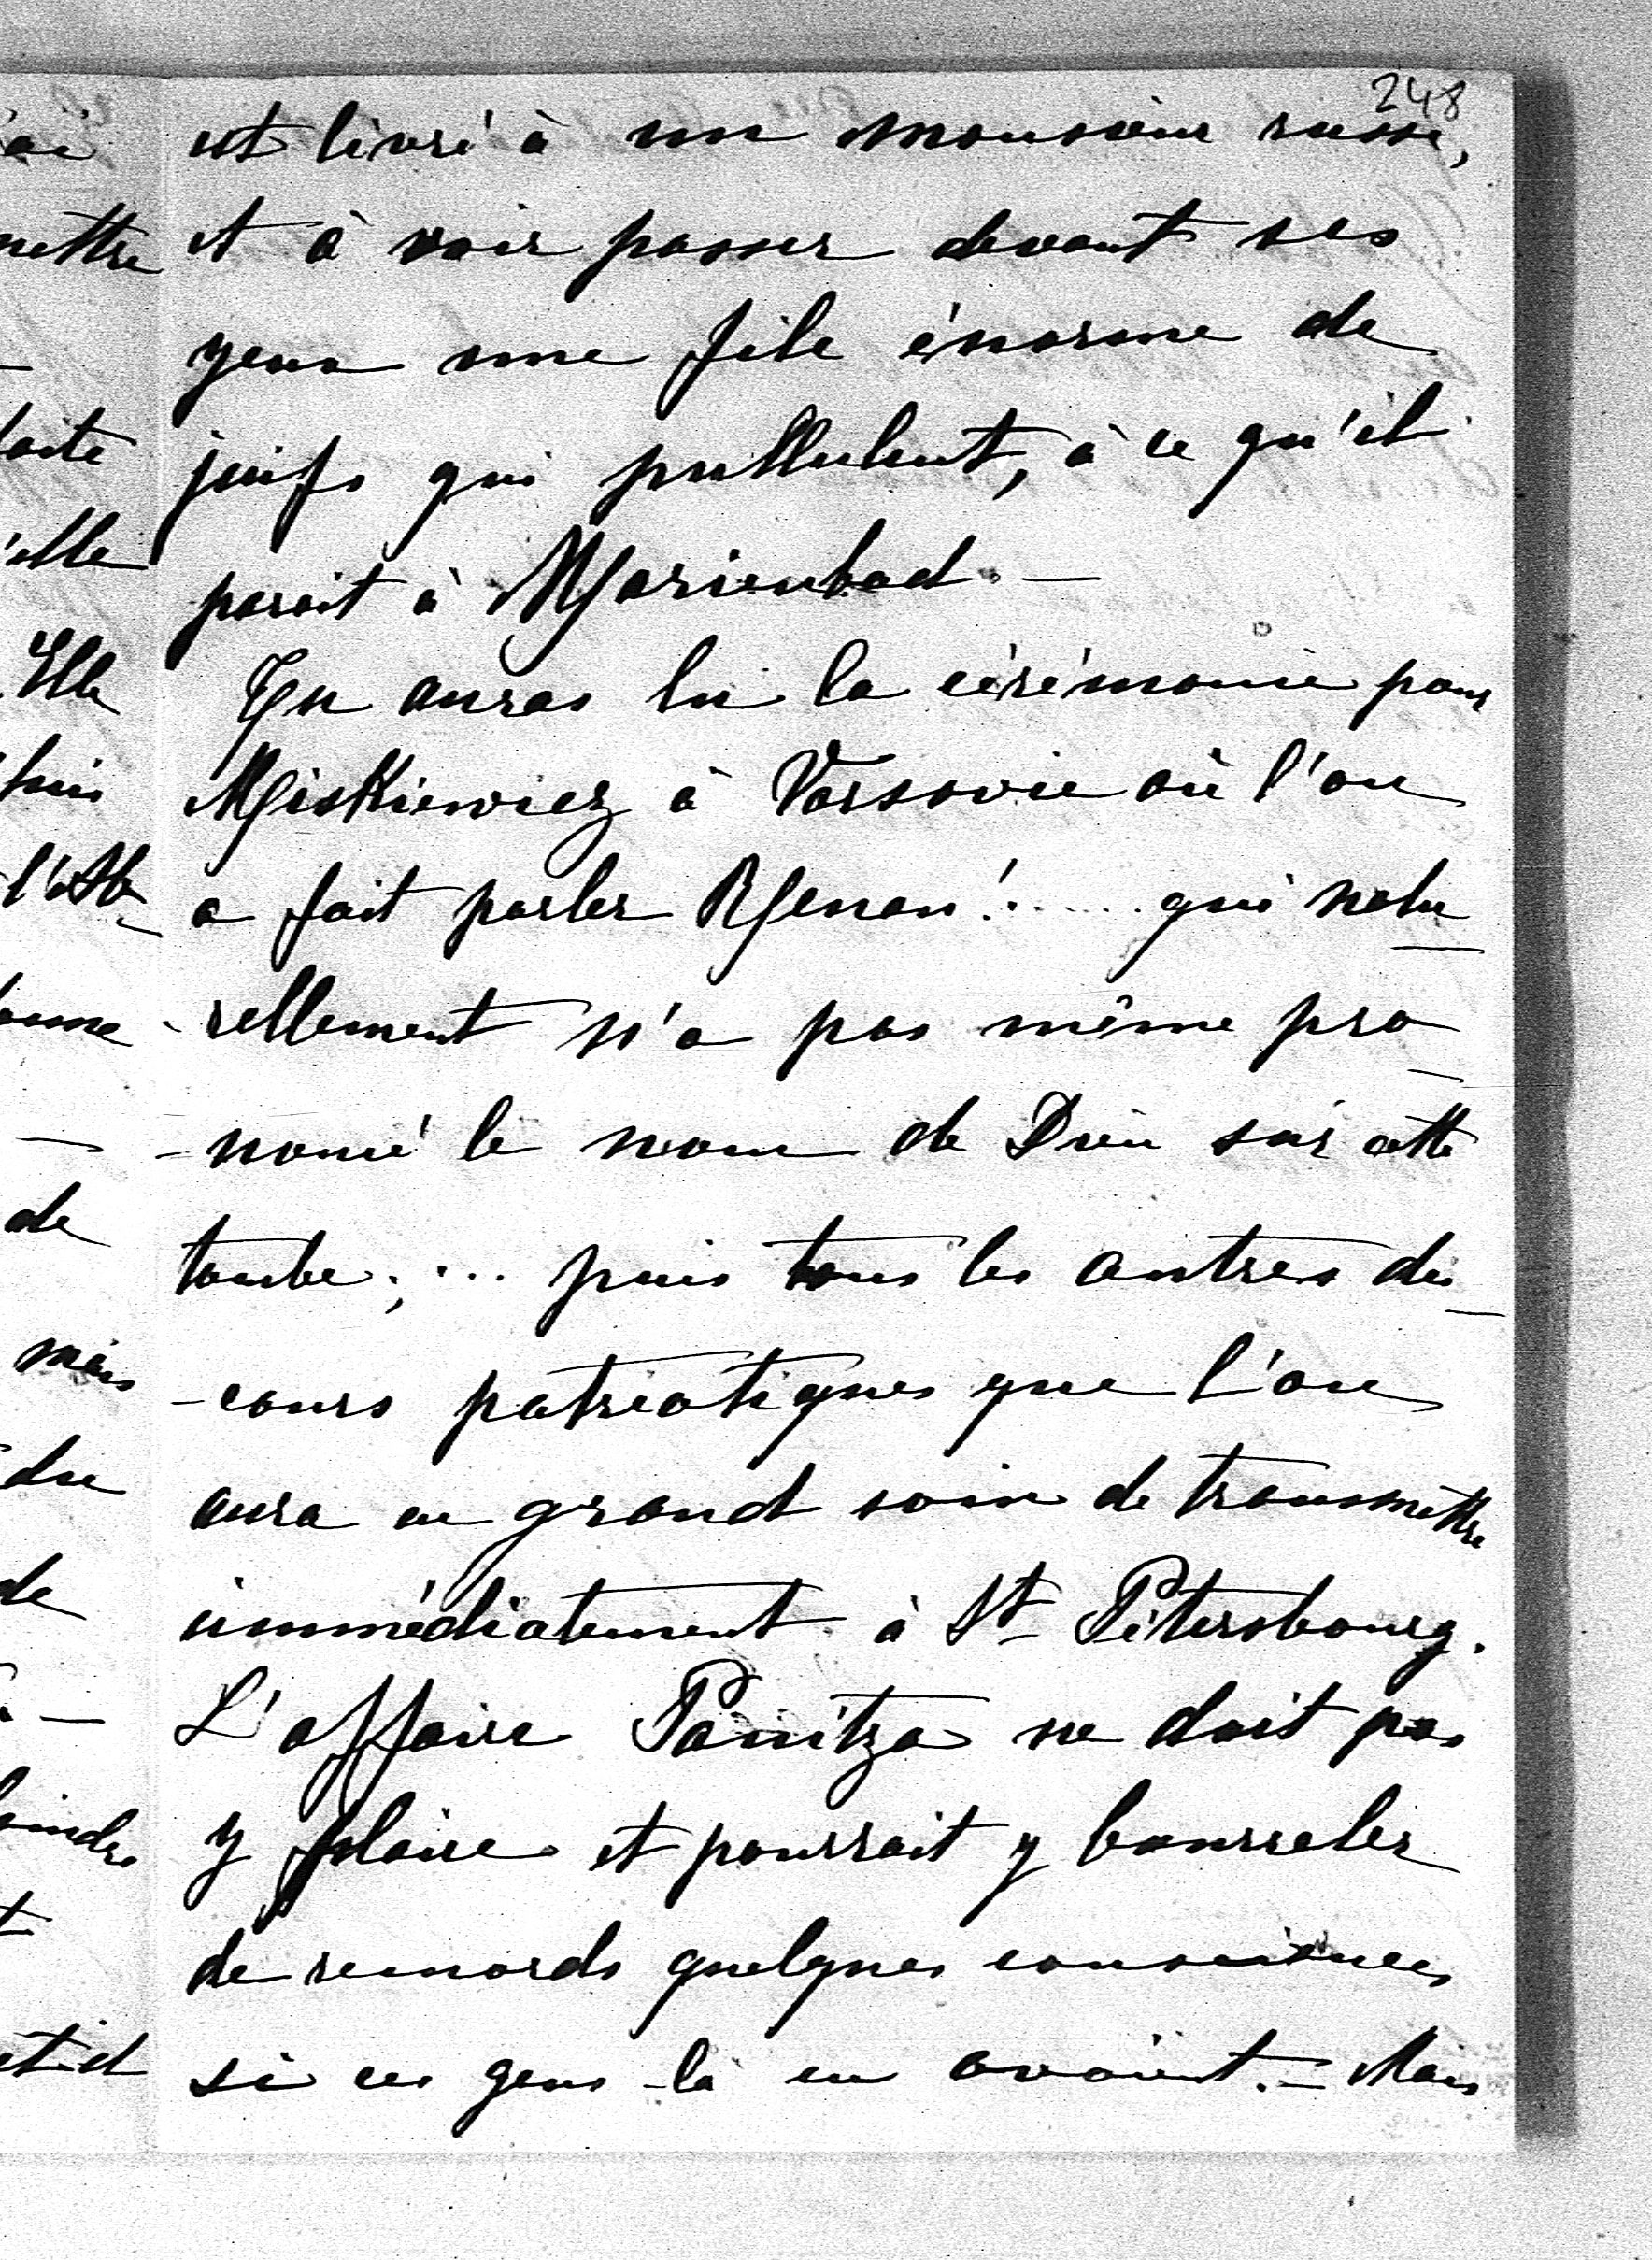 248
est livré à un monsieur russe,
et à voir passer devant ses
yeux une file énorme de
juifs qui pullulent, à ce qu'il
parait à Marienbad. —
Tu auras lu la cérémonie pour
Miskiewicz à Varsovie où l'on
a fait parler Renan!..... qui natu
- rellement n'a pas même pro
- noncé le nom de Dieu sur cette
tombe;... puis tous les autres dis
- cours patriotiques que l'on
aura eu grand soin de transmettre
immédiatement à St Pétersbourg.
L'affaire Panitza ne doit pas
y plaire et pourrait y bourreler
de remords quelques consciences
si ces gens-là en avaient. — Mais
ai
mettre
elle
Elle
de
mais
du
de